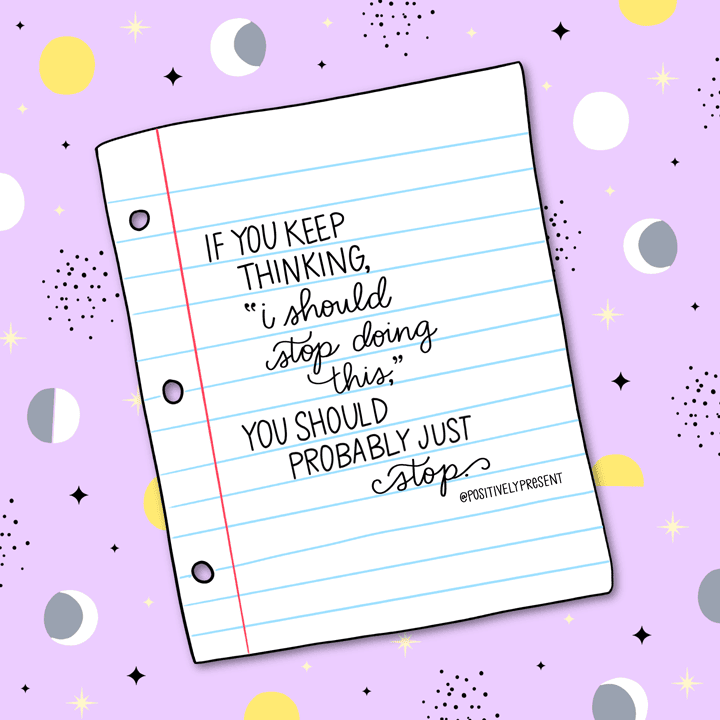 IF YOU KEEP
THINKING,
"i should
stop doing
this,"
YOU SHOULD
PROBABLY JUST
stop.
@POSITIVELYPRESENT